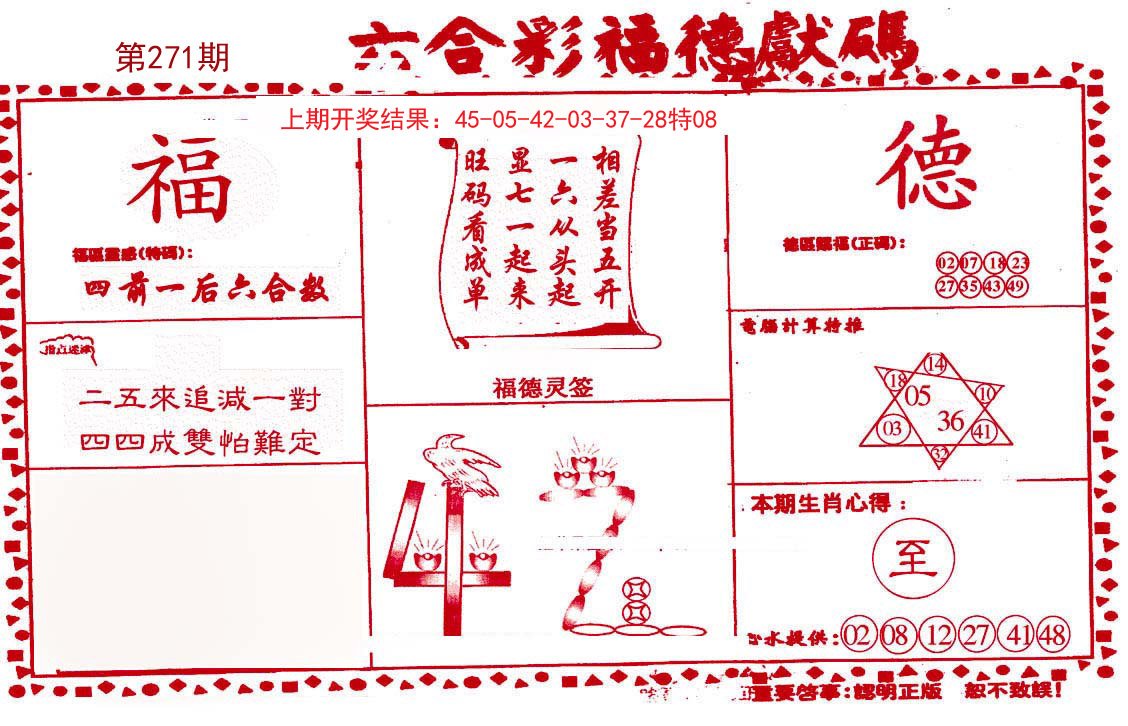 第271期
六合彩福德獻碼
上期开奖结果：45-05-42-03-37-28特08
福
福區靈感(特碼)：
四前一后六合数
指点迷津
二五來追減一對
四四成雙怕難定
相差当五开
一六从头起
显七一起来
旺码看成单
福德灵签
德
德區賜福(正碼)：
02 07 18 23
27 35 43 49
電腦計算特推
14
18 05 10
03 36 41
32
本期生肖心得：
至
水提供：02 08 12 27 41 48
重要啓事：認明正版 恕不致誤！